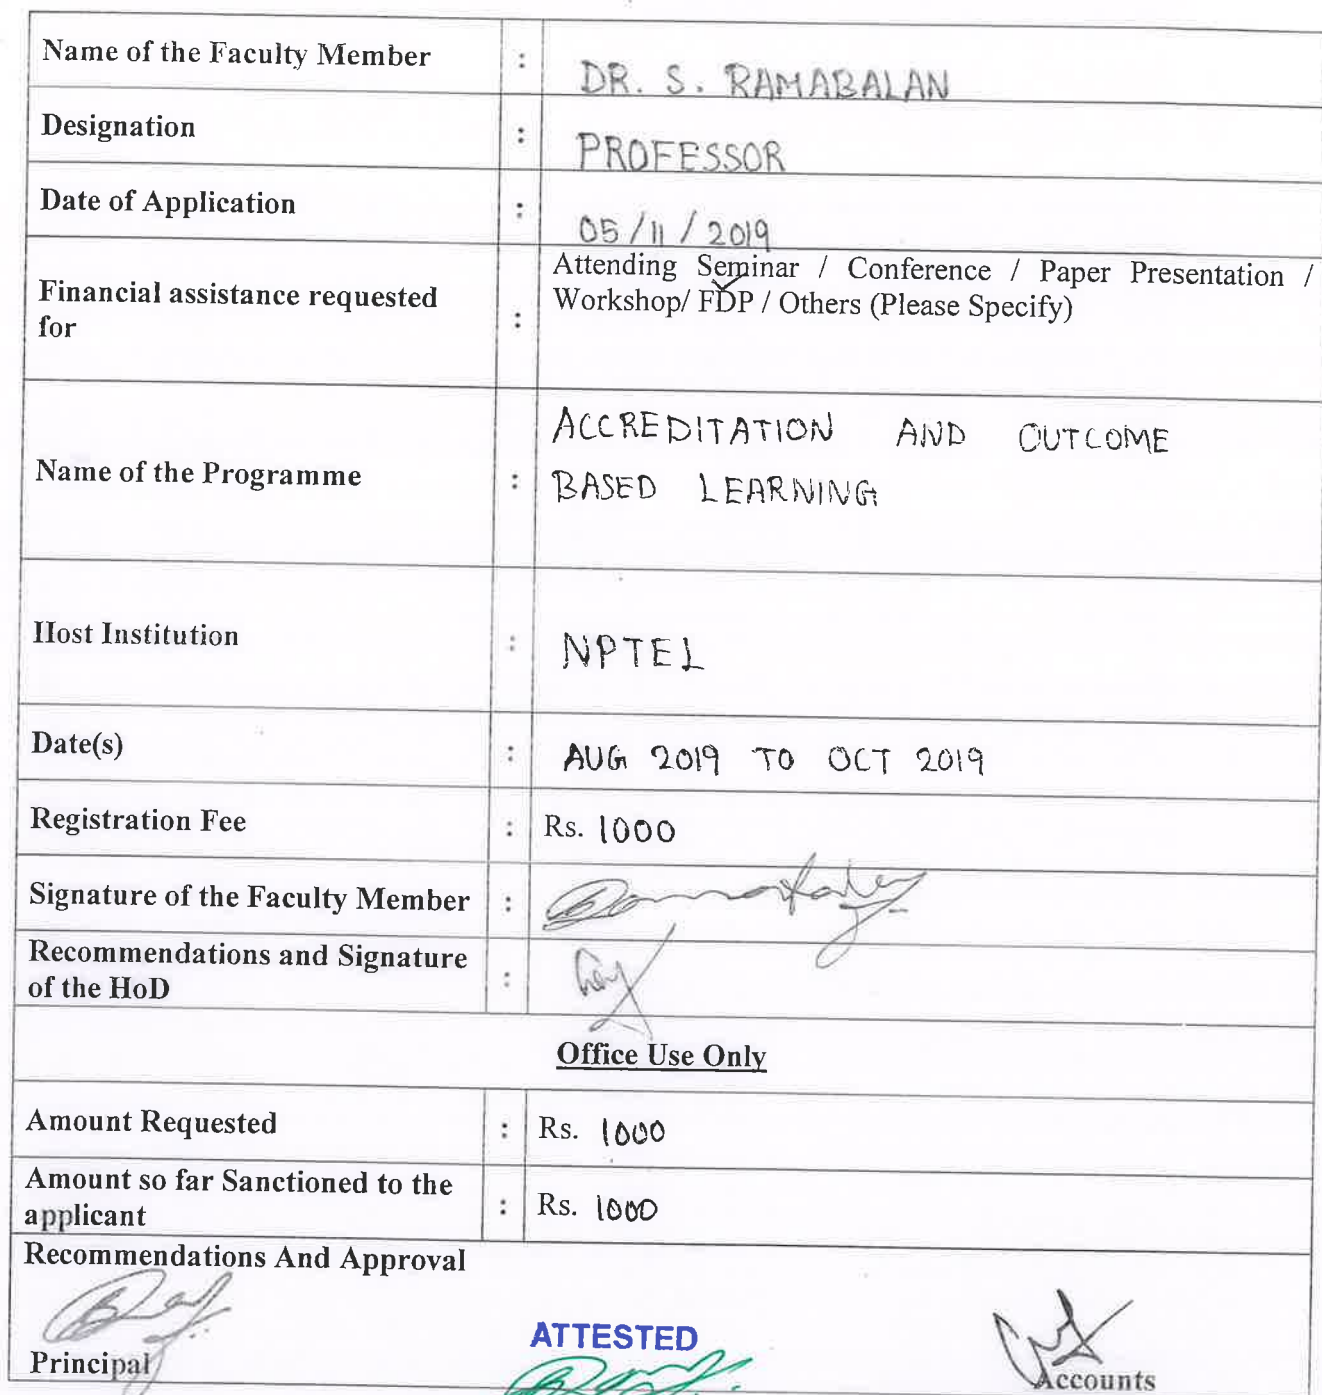 Name of the Faculty Member : DR. S. RAMABALAN
Designation : PROFESSOR
Date of Application : 05/11/2019
Financial assistance requested for : Attending Seminar / Conference / Paper Presentation /
Workshop/ FDP / Others (Please Specify)
Name of the Programme : ACCREDITATION AND OUTCOME
BASED LEARNING
Host Institution : NPTEL
Date(s) : AUG 2019 TO OCT 2019
Registration Fee : Rs. 1000
Signature of the Faculty Member :
Recommendations and Signature
of the HoD :
Office Use Only
Amount Requested : Rs. 1000
Amount so far Sanctioned to the
applicant : Rs. 1000
Recommendations And Approval
ATTESTED
Principal
Accounts